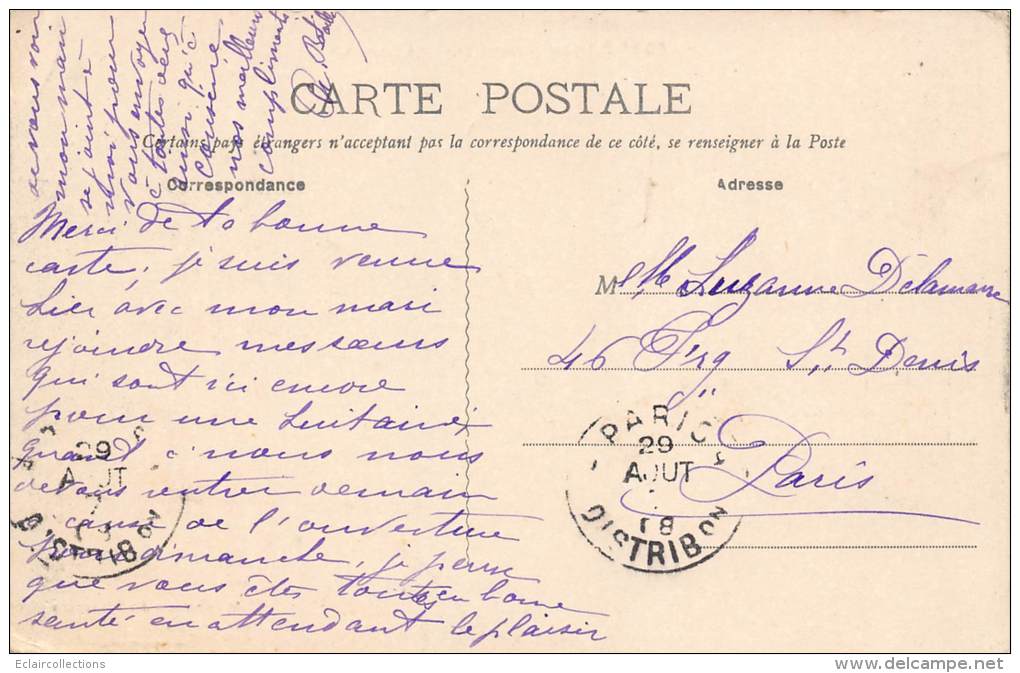 CARTE POSTALE
Certains pays étrangers n'acceptant pas la correspondance de ce côté, se renseigner à la Poste
Correspondance
Adresse
Merci de ta bonne
carte, je suis venue
hier avec mon mari
rejoindre mes sœurs
qui sont ici encore
pour une huitaine,
quant à nous nous
devons rentrer demain
à cause de l'ouverture
pour dimanche, je pense
que vous êtes toutes en bonne
santé en attendant le plaisir
de vous voir
mon mari
se joint à
moi pour
vous envoyer
à toutes deux
ainsi qu'à
nos meilleurs
compliments
M
Mlle Suzanne Delamarre
46 Fbg St Denis
Paris
PARIS
29
AOUT
08
DISTRIBON
29
AOUT
08
DISTRIBON
Eclaircollections
www.delcampe.net